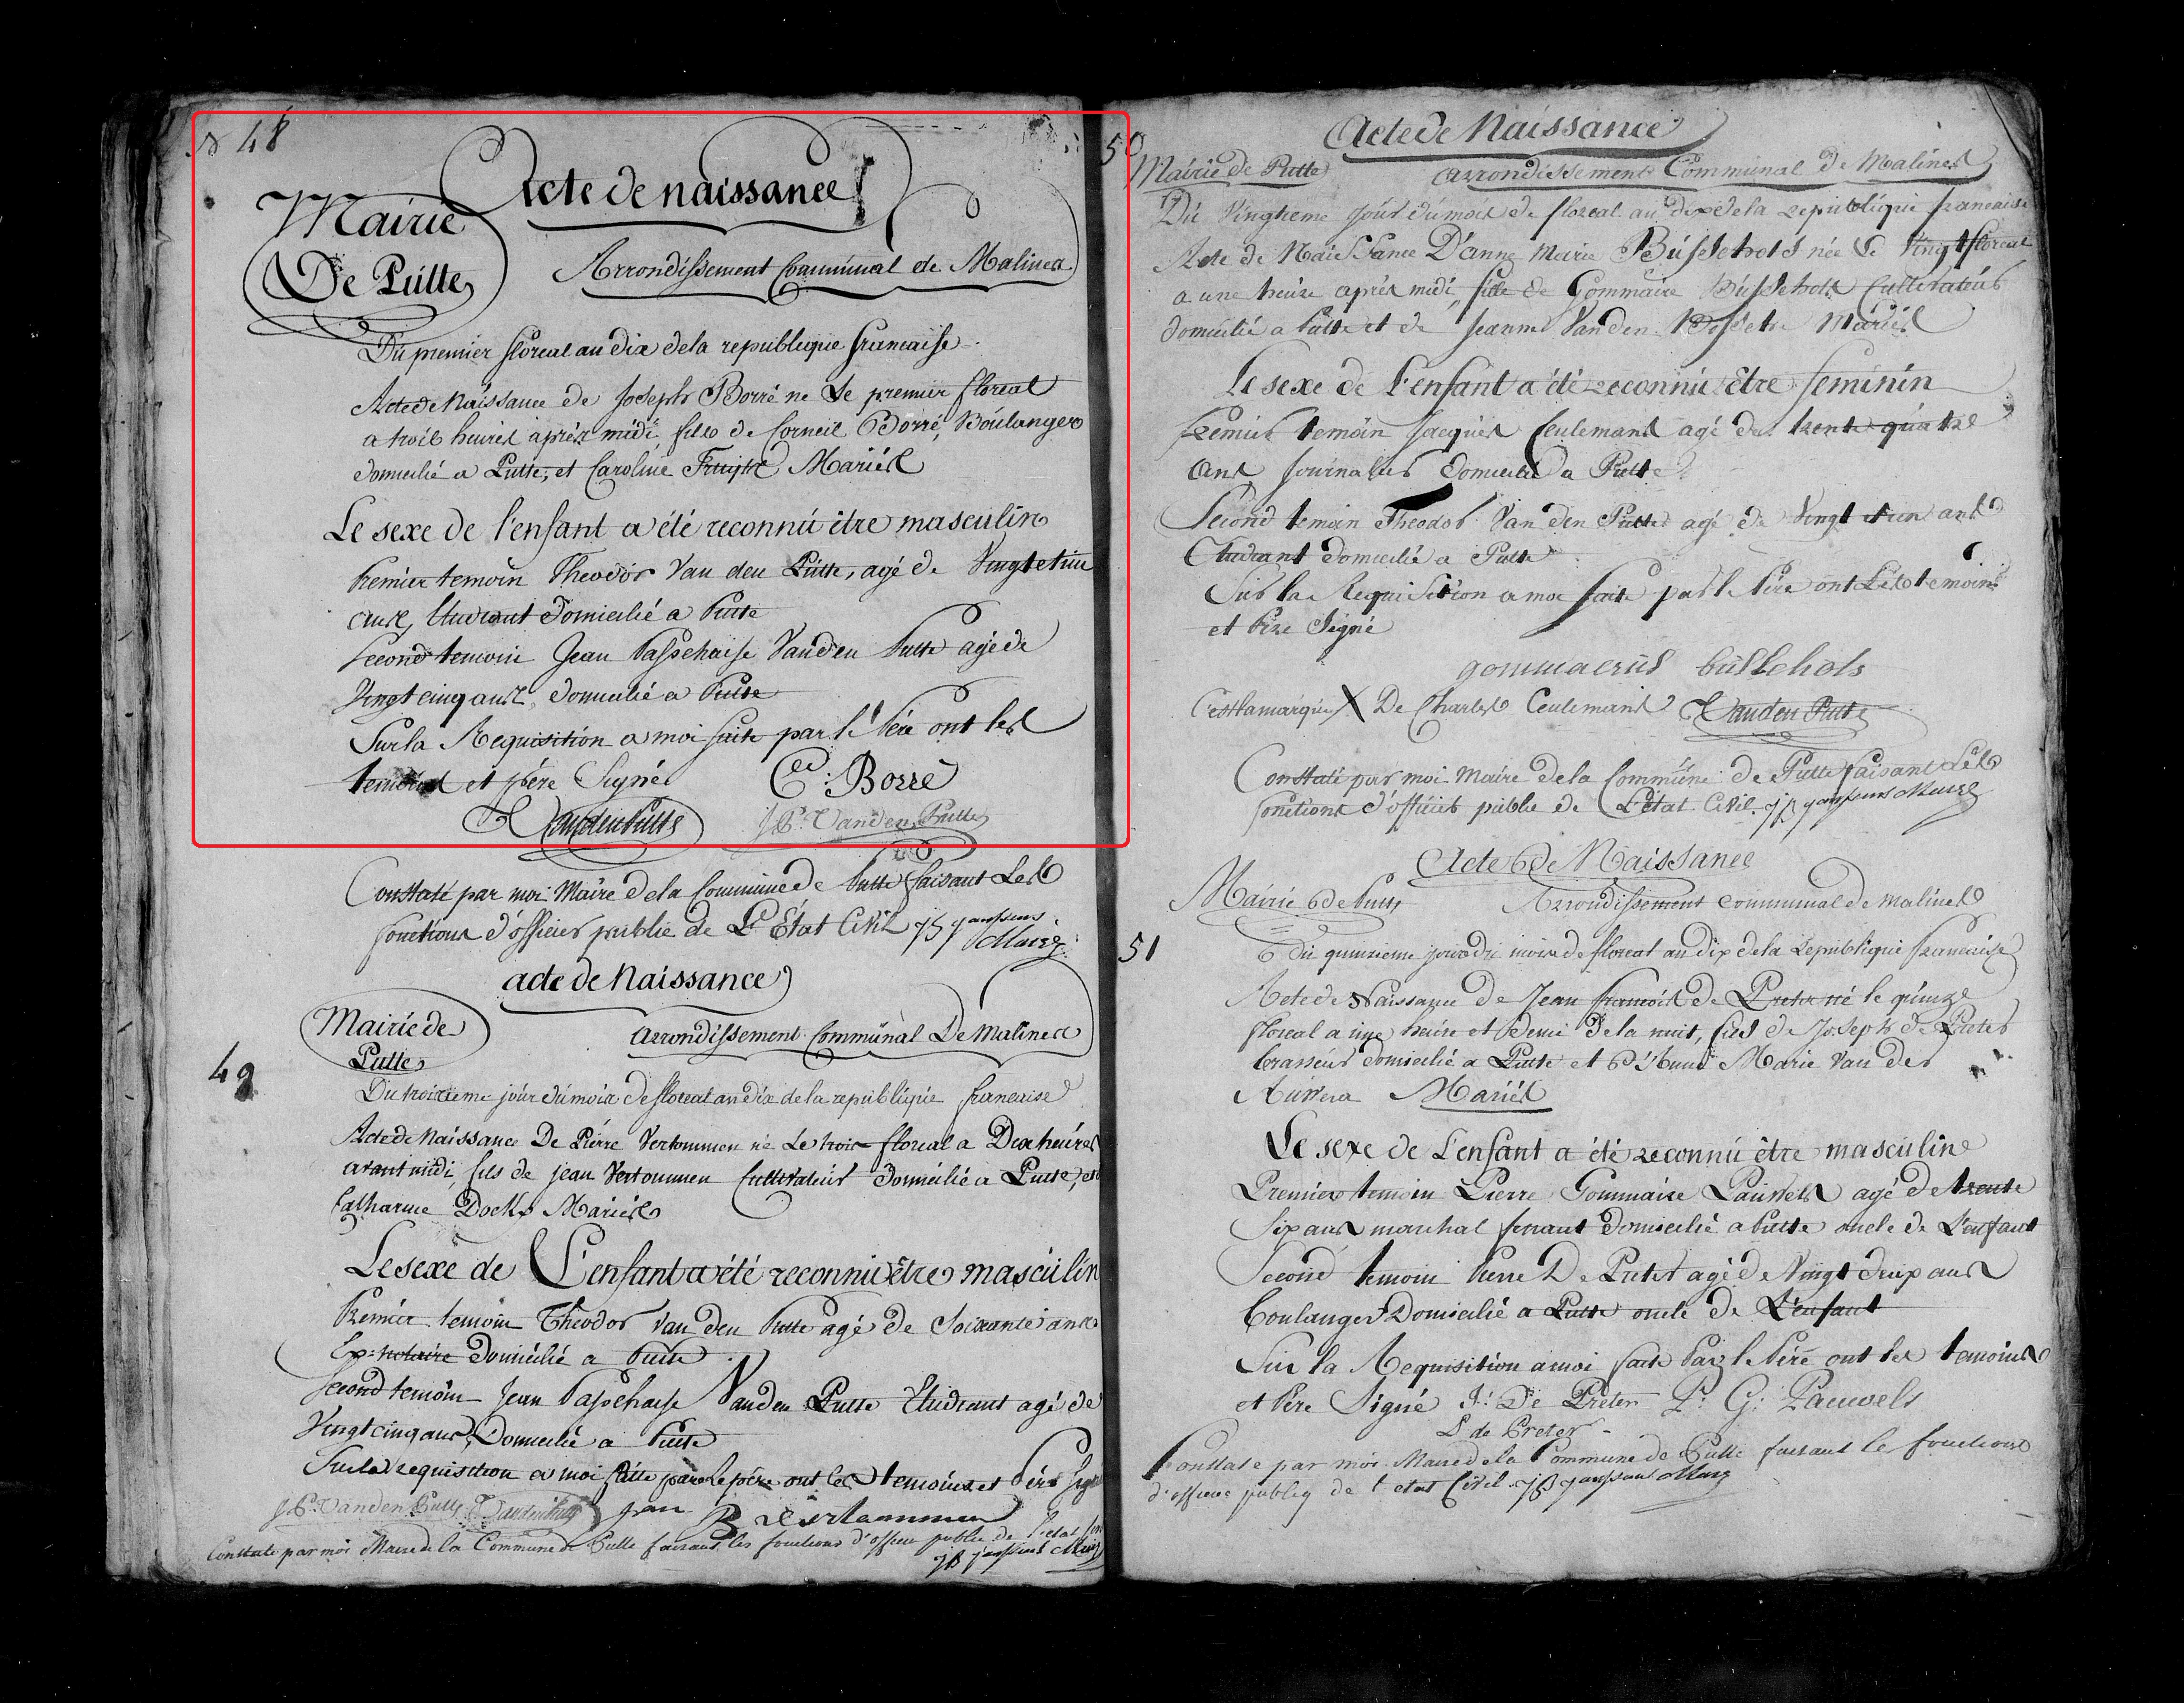 N 48
Acte de naissance
Mairie
De Putte
Arrondissement Communal de Malines
Du premier floreal an dix de la republique francaise
Acte de Naissance de Joseph Borré ne Le premier floreal
a trois heures aprés midi, fils de Corneil Borré, Boulanger
domicilié a Putte, et Caroline Mariés
Le sexe de l'enfant a été reconnú être masculin
Premier temoin Theodor Van den Putte, agé de Vingt et un
ans, Etudiant domicilié a Putte
second temoin Jean Passchaise Vanden Putte agé de
Vingt cinq ans, domicilié a Putte
Sur la Requisition a moi faite par le Pére ont les
temoins et pére Signé C: Borré
T Vanden Putte JP: Vanden Putte
Constaté par moi Maire de la Commune de Putte faisant Les
fonctions d'officier public de L'Etat Civil JB Janssens
Maire
acte de Naissance
Mairie de
Putte
Arrondissement Communal De Malines
49
Du troisieme jour du mois de floreal an dix de la republiqúe francaise
Acte de Naissance De Piérre Vertommen né Le trois floreal a Dix heúres
avant midi, fils de jean Vertommen Cultivateúr domicilié a Putte, et
Catharine Dockx Mariés
Le sexe de L'enfant a été reconnú être masculin
Premier temoin Theodor Van den Putte agé de Soixante ans
Ex-notaire Domicilié a Putte
Second temoin Jean Passchase Vanden Putte Etudiant agé de
Vingt cinq ans, Domicilié a Putte
Sur la requisition a moi faitte par Le pére ont les temoins et Pére Signé
JP: Vanden Putte T Vanden Putte Jean B Vertommen
Constaté par moi Maire de la Commune de Putte faisant les fonctions d'officier public de l'etat
JB Janssens Maire
50
Acte de Naissance
Mairie de Putte Arrondissement Communal de Malines
Du Vingtieme Jour du mois de floreal an dix de la republiqúe francaise
Acte de Naissance D'anne Marie Busschots née Le Vingt floreal
a une heure aprés midi, fille de Gommaire Busschots Cultivateúr
domicilié a Putte et de Jeanne Vanden Mariés
Le sexe de L'enfant a été reconnú être feminin
Premier temoin Jacques Ceulemans agé de trente quatre
ans Journalier domicilié a Putte
Second temoin Theodor Van den Putte agé de Vingt et un ans
Etudiant domicilié a Putte
Sur la Requisition a moi faite par le Pére ont Les temoins
et Pére Signé
gommaerus busschots
C'est la marque X De Charles Ceulemans T Vanden Putte
Constaté par moi Maire de la Commúne de Putte faisant Les
fonctions d'officier public de L'état Civil JB Janssens Maire
Acte de Naissance
Mairie de Putte Arrondissement Communal de Malines
51
du quinzieme jour du mois de floreal an dix de la Republique francaise
Acte de Naissance de Jean francois de Preter né le quinze
floreal a une heúre et demi de la nuit, fils de Joseph de Preter
brasseur domicilié a Putte et d'Anne Marie Van der
Auwera Mariés
Le sexe de L'enfant a été reconnú être masculin
Premier temoin Pierre Gommaire Pauwels agé de trente
Six ans marechal ferrant domicilié a Putte oncle de L'enfant
Second temoin Pierre De Preter agé de Vingt deux ans
boulanger Domicilié a Putte oncle de L'enfant
Sur la Requisition a moi faite Par le Pére ont les temoins
et Pére Signé J: De Preter P: G: Pauwels
P de Preter
Constaté par moi Maire de la Commune de Putte faisant les fonctions
d'officier publiq de l'etat Civil JB Janssens Maire